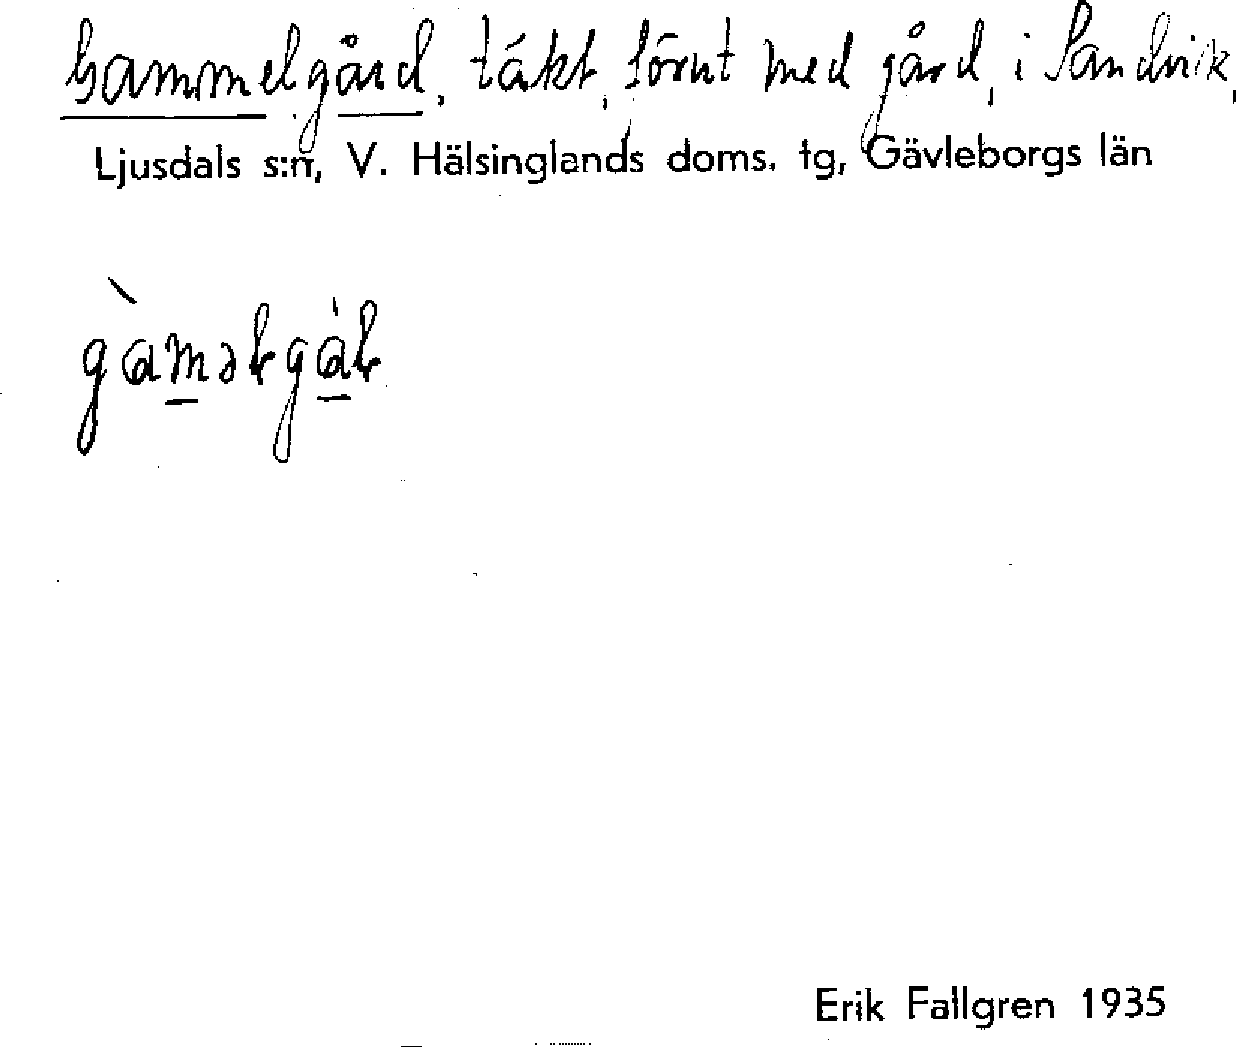 Gammelgård, täkt, förut med gård, i Sandvik,
Ljusdals s:n, V. Hälsinglands doms. tg, Gävleborgs län
Erik Fallgren 1935